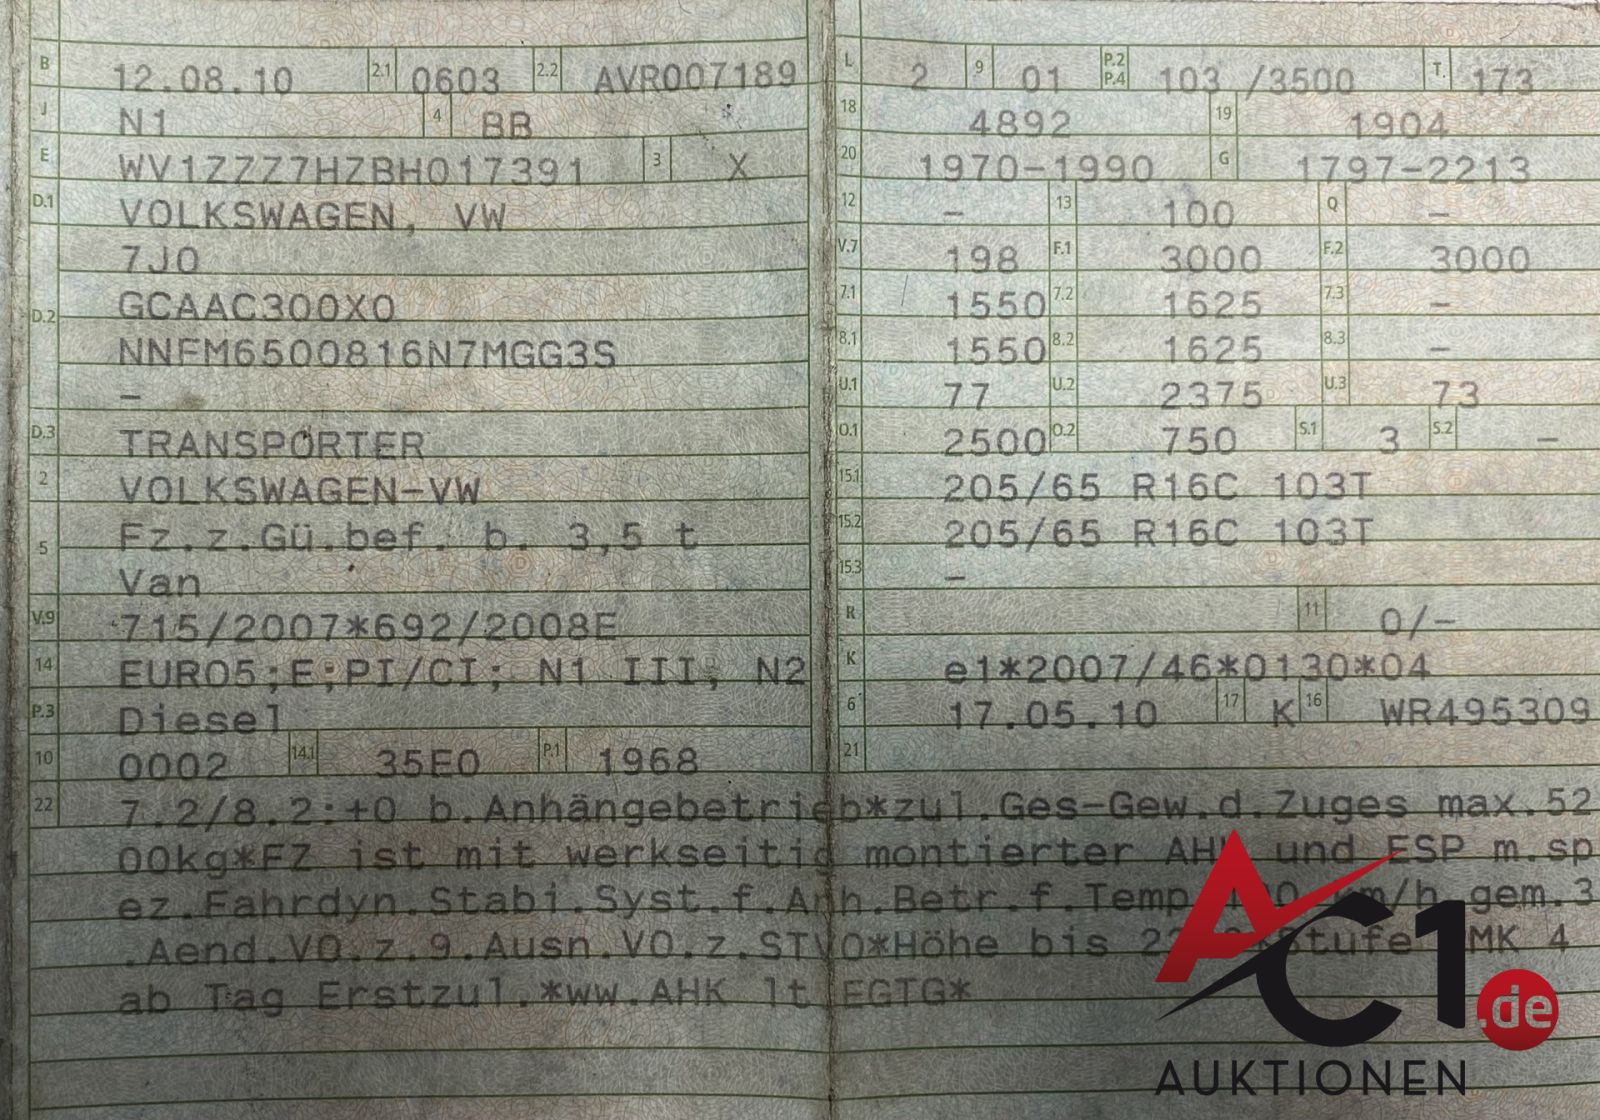 B 12.08.10 2.1 0603 2.2 AVR007189
J N1 4 BB
E WV1ZZZ7HZBH017391 3 X
D.1 VOLKSWAGEN, VW
7J0
D.2 GCAAC300X0
NNFM6500816N7MGG3S
–
D.3 TRANSPORTER
2 VOLKSWAGEN-VW
5 Fz.z.Gü.bef. b. 3,5 t
Van
V.9 715/2007*692/2008E
14 EURO5;E;PI/CI; N1 III, N2
P.3 Diesel
10 0002 14.1 35E0 P.1 1968
L 2 9 01 P.2 P.4 103 /3500 T. 173
18 4892 19 1904
20 1970-1990 G 1797-2213
12 – 13 100 Q –
V.7 198 F.1 3000 F.2 3000
7.1 1550 7.2 1625 7.3 –
8.1 1550 8.2 1625 8.3 –
U.1 77 U.2 2375 U.3 73
O.1 2500 O.2 750 S.1 3 S.2 –
15.1 205/65 R16C 103T
15.2 205/65 R16C 103T
15.3 –
R 11 0/–
K e1*2007/46*0130*04
6 17.05.10 17 K 16 WR495309
21
22 7.2/8.2:+0 b.Anhängebetrieb*zul.Ges-Gew.d.Zuges max.52
00kg*FZ ist mit werkseitig montierter AHK und ESP m.sp
ez.Fahrdyn.Stabi.Syst.f.Anh.Betr.f.Temp km/h gem.3
.Aend.VO.z.9.Ausn.VO.z.STVO*Höhe bis Stufe MK 4
ab Tag Erstzul.*ww.AHK lt EGTG*
AC1.de
AUKTIONEN